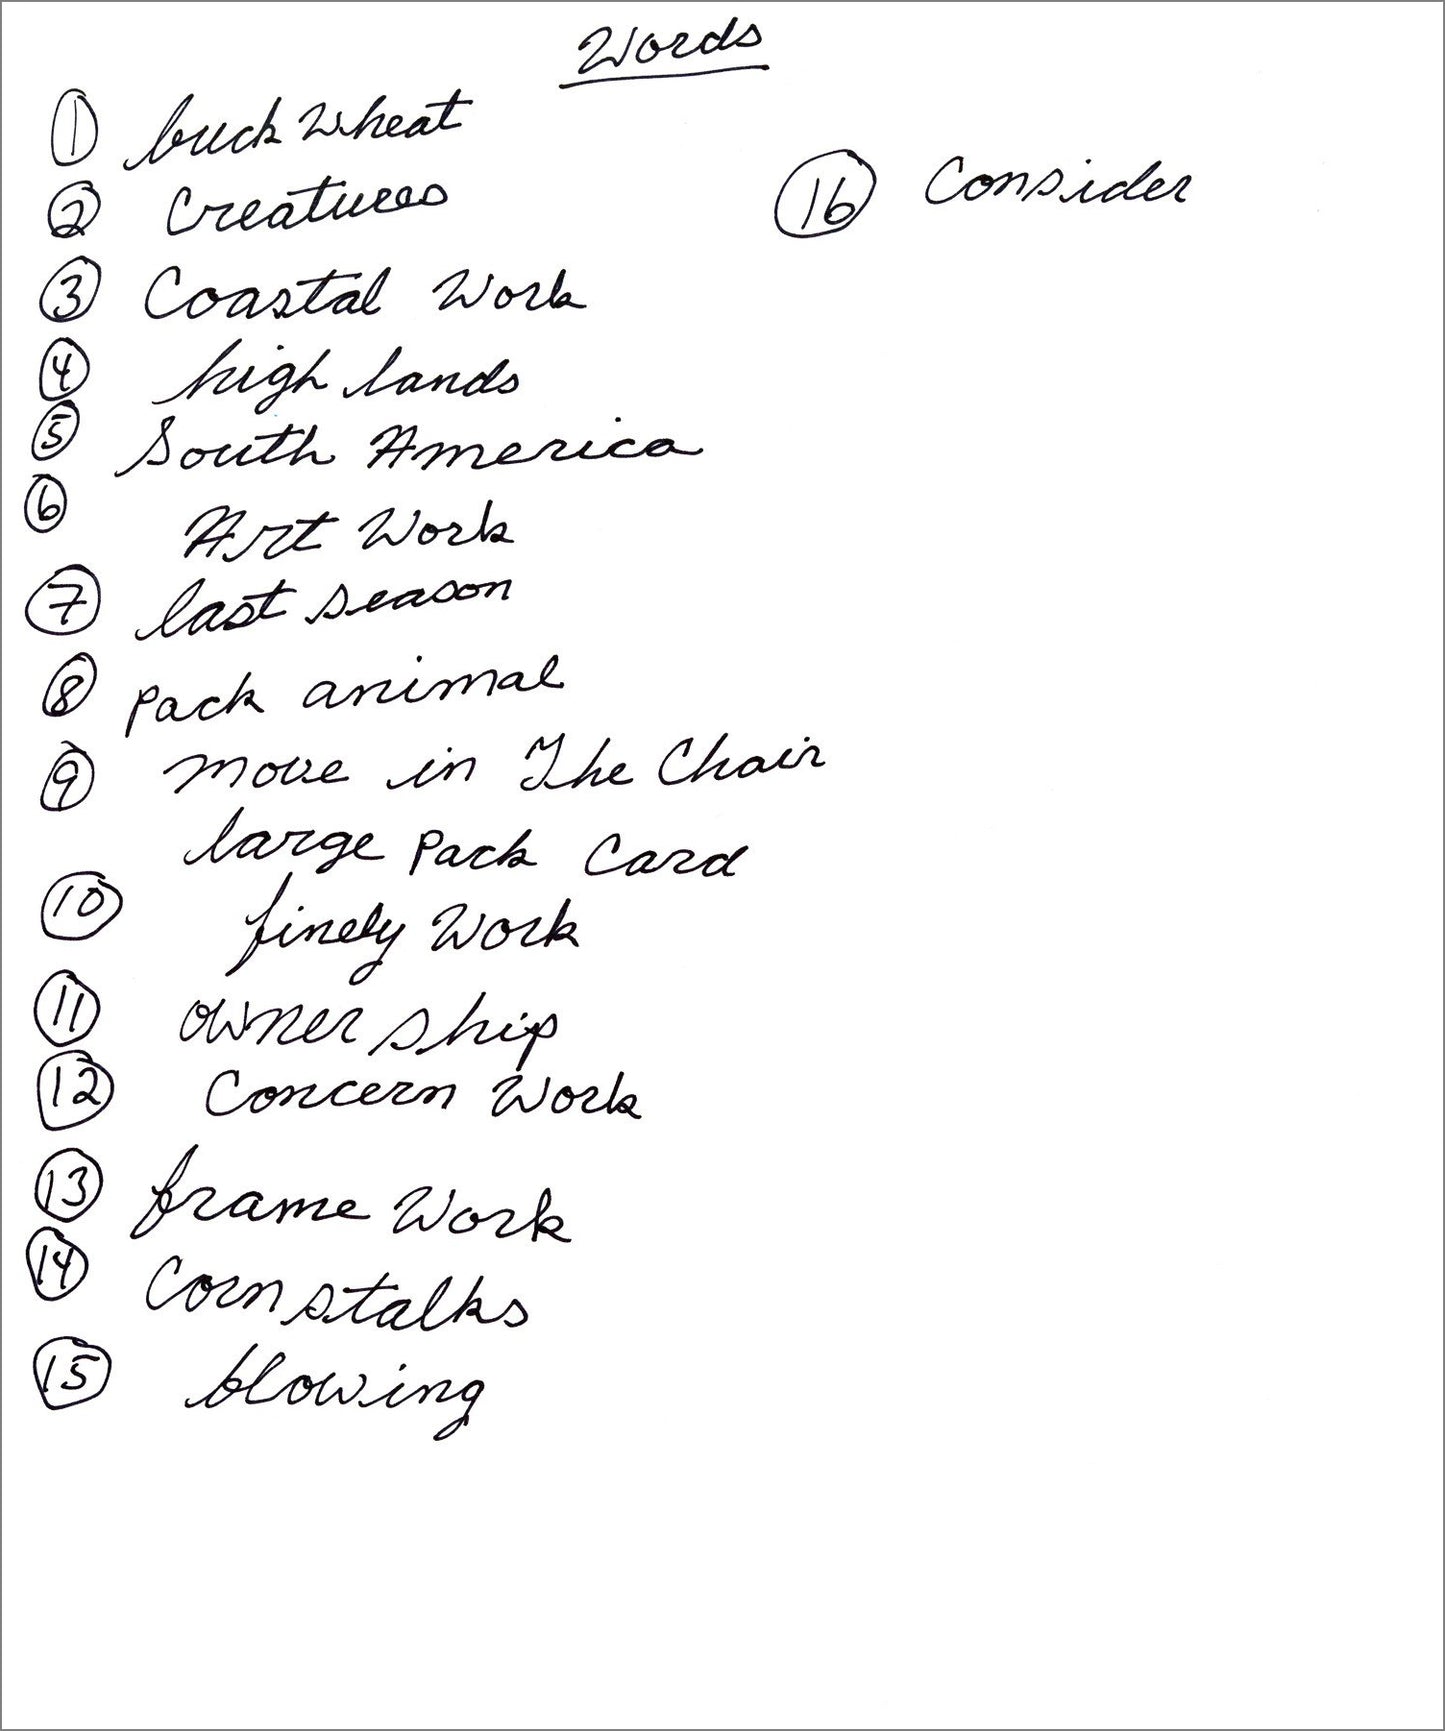 Words
① buck wheat
② Creatures
③ Coastal Work
④ high lands
⑤ South America
⑥ Art Work
⑦ last season
⑧ pack animal
⑨ move in The Chair
large pack Card
⑩ finely Work
⑪ owner ship
⑫ Concern Work
⑬ frame Work
⑭ Corn stalks
⑮ blowing
⑯ Consider